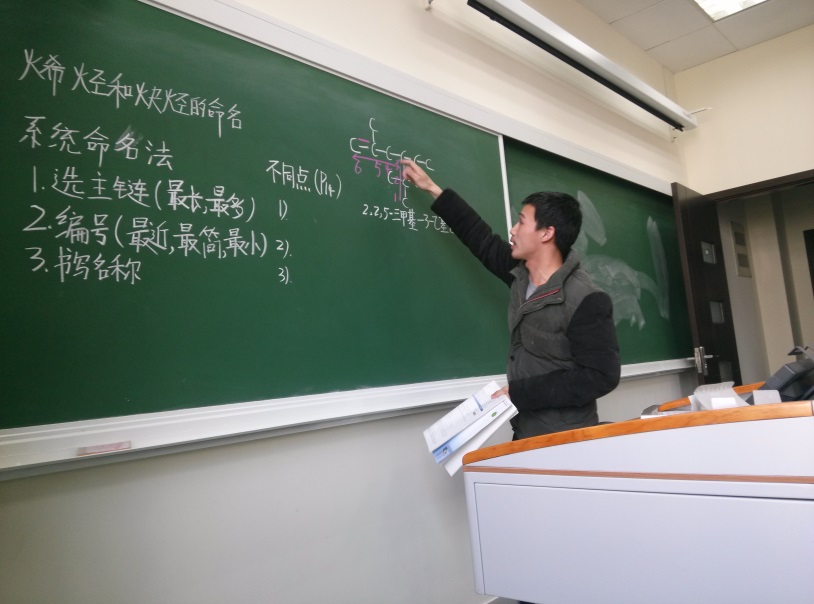 烯烃和炔烃的命名
系统命名法
1.选主链(最长,最多)
2.编号(最近,最简,最小)
3.书写名称
不同点(P14)
1)
2).
3).
C
C=C-C-C-C-C
6 5
C
C
2,2,5-三甲基-3-乙基